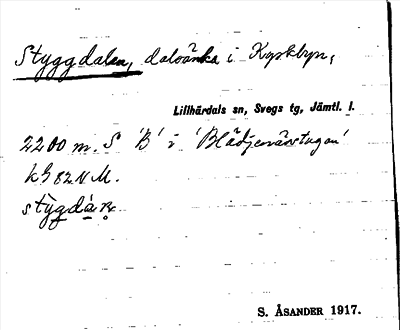 Styggdalen, dalsänka i Kyrkbyn,
Lillhärdals sn, Svegs tg, Jämtl. l.
2200 m. S 'B' i 'Blädjenässtugan'
kg 82 V M.
S. ÅSANDER 1917.